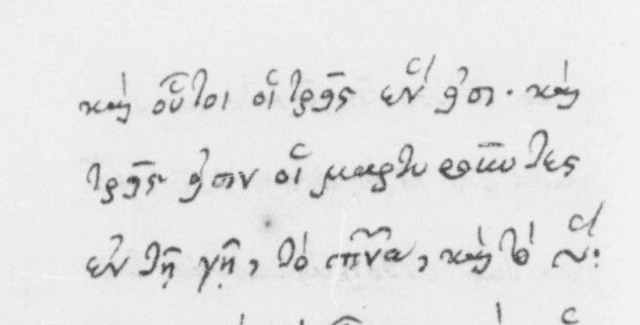 καὶ οὗτοι οἱ τρεῖς ἕν εἰσι. καὶ
τρεῖς εἰσιν οἱ μαρτυροῦντες
ἐν τῇ γῇ, τὸ πνα, καὶ τὸ